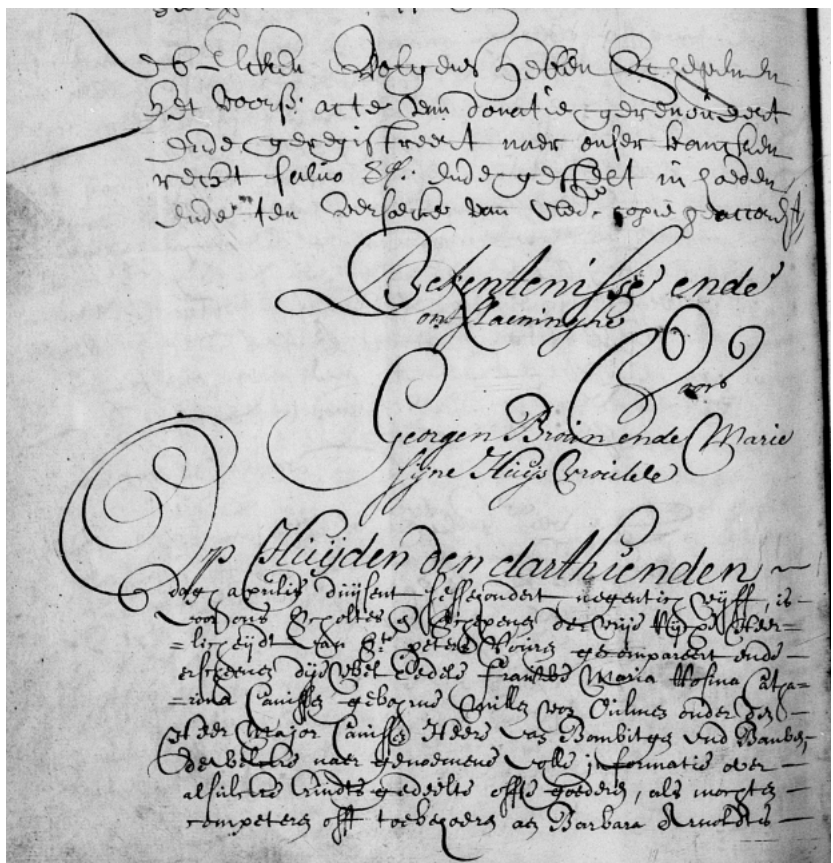 Achtervolgens hebben Schepenen
het voors: acte van donatie gerenoveert
ende geregistreert naer onser bancken
recht salvo &c. ende gestelt in hoeden
ende ten versoecke van copie geaccordt
Bekentenisse ende
ontflaeninghe
Voor
Georgen Broun ende Marie
syne Huys Vrouwe
Op Huijden den darthienden
dag aprilis duijsent sesshondert negentich vijff, is
voor ons Scholtes & Schepenen der vrije Rijx Heer-
-licheijdt van St. peters Vouren gecompareert ende
erschenen dije wel Edele Frauwe Maria Rosina Catha-
-rina Canisse geboerne von onder den
Heer Major Canisse Heere van Bombitge und
dewelcke naer genoemene volle informatie over
alsulcke kindts gedeelte offte goederen, als mochte
competeren off toebehoeren aen Barbara Arnoldts